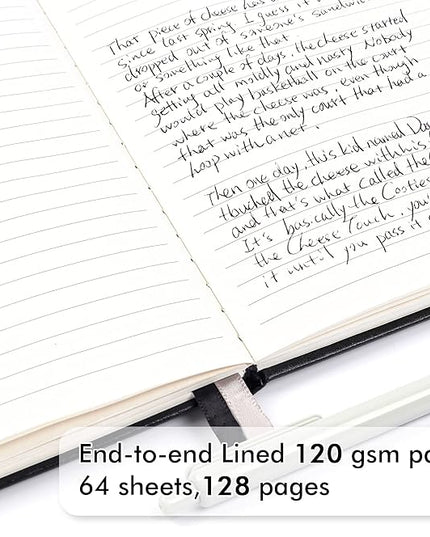 That piece of cheese has
since last spring. I guess it m
dropped out of someone's sandwi
or something like that
After a couple of days, the cheese started
getting all moldly and nasty. Nobody
would play basketball on the court
where the cheese was, even though
that was the only court that had a
hoop with a net.
Then one day, this kid named Da
thuched the cheese with his
and that's what called the
It's basically the Cooties
the Cheese Touch, you'
it until you pass it
End-to-end Lined 120 gsm pa
64 sheets,128 pages